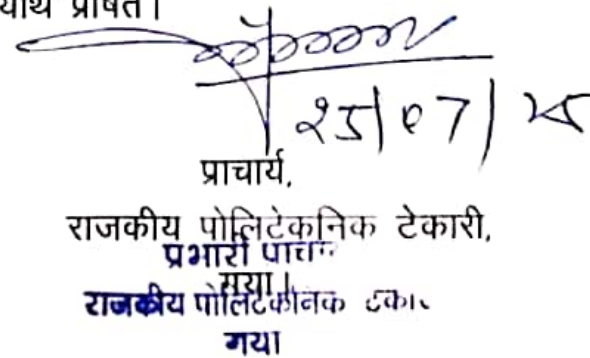 प्रेषित।
25/07/25
प्राचार्य,
राजकीय पोलिटेकनिक टेकारी,
प्रभारी
गया।
राजकीय पोलिटेकनिक
गया